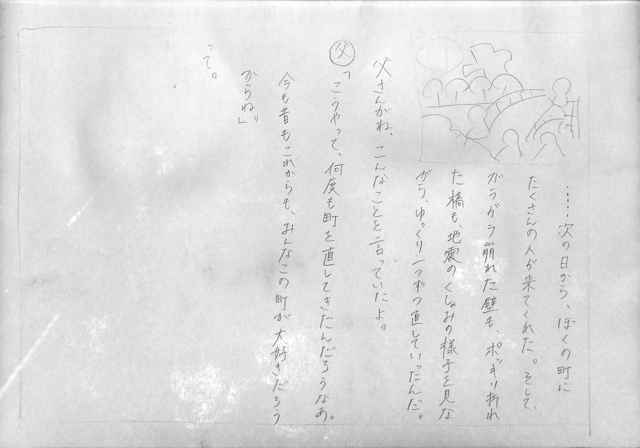 ……次の日から、ぼくの町に
たくさんの人が来てくれた。そして、
ガラガラ崩れた壁も、ポッキリ折れ
た橋も、地震のくしゃみの様子を見な
がら、ゆっくり一つずつ直していったんだ。
父さんがね、こんなことを言っていたよ。
父「こうやって、何度も町を直してきたんだろうなあ。
今も昔もこれからも、みんなこの町が大好きだろう
からね。」
って。